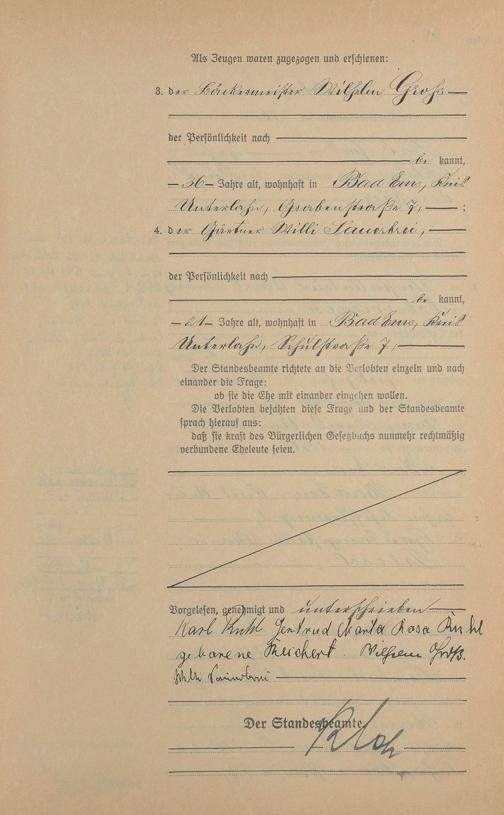 Als Zeugen waren zugezogen und erschienen:
3. der Bäckermeister Wilhelm Groß
der Persönlichkeit nach
be kannt,
36 Jahre alt, wohnhaft in Bad Ems, Kreis
Unterlahn, Grabenstraße 7, ;
4. der Gärtner Willi Sauerbrei,
der Persönlichkeit nach
be kannt,
21 Jahre alt, wohnhaft in Bad Ems, Kreis
Unterlahn, Schulstraße 7,
Der Standesbeamte richtete an die Verlobten einzeln und nach
einander die Frage:
ob sie die Ehe mit einander eingehen wollen.
Die Verlobten bejahten diese Frage und der Standesbeamte
sprach hierauf aus:
daß sie kraft des Bürgerlichen Gesetzbuchs nunmehr rechtmäßig
verbundene Eheleute seien.
Vorgelesen, genehmigt und unterschrieben
Karl Ruhl Gertrud Maria Rosa Ruhl
geborene Reichert. Wilhelm Groß.
Willi Sauerbrei
Der Standesbeamte